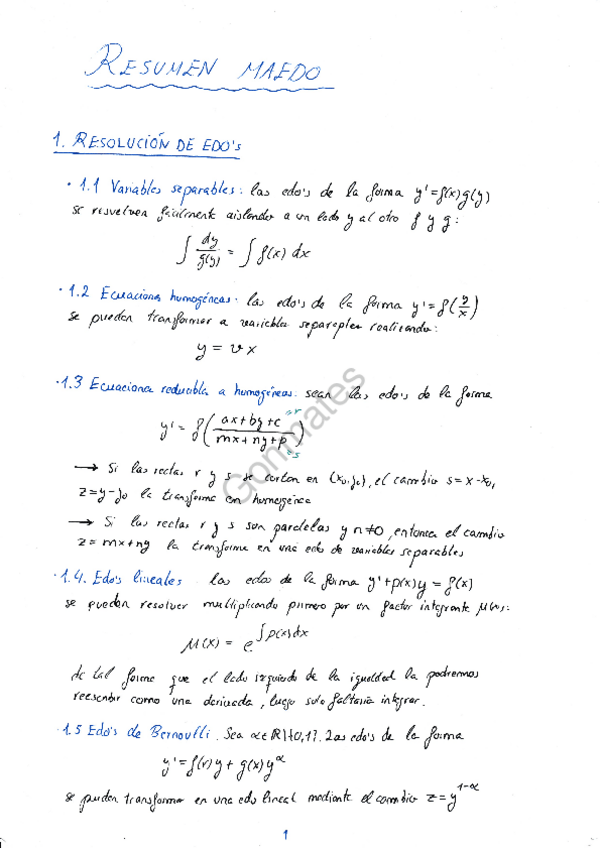 RESUMEN MAEDO
1. RESOLUCIÓN DE EDO's
· 1.1 Variables separables: las edo's de la forma y' = f(x)g(y)
se resuelven fácilmente aislando a un lado y al otro f y g:
∫ dy/g(y) = ∫ f(x) dx
· 1.2 Ecuaciones homogéneas: las edo's de la forma y' = f(y/x)
se pueden transformar a variables separables realizando:
y = v x
· 1.3 Ecuaciones reducibles a homogéneas: sean las edo's de la forma
y' = f( (ax+by+c)/(mx+ny+p) ) r s
→ Si las rectas r y s se cortan en (x₀, y₀), el cambio s = x-x₀,
z = y-y₀ la transforma en homogénea
→ Si las rectas r y s son paralelas y n≠0, entonces el cambio
z = mx+ny la transforma en una edo de variables separables
· 1.4. Edo's lineales: las edos de la forma y'+p(x)y = f(x)
se pueden resolver multiplicando primero por un factor integrante μ(x):
μ(x) = e^∫p(x)dx
de tal forma que el lado izquierdo de la igualdad la podremos
reescribir como una derivada, luego solo faltaría integrar.
· 1.5 Edo's de Bernoulli. Sea α∈ℝ\{0,1}. Las edo's de la forma
y' = f(x)y + g(x)y^α
se pueden transformar en una edo lineal mediante el cambio z = y^1-α
1
Gonmates